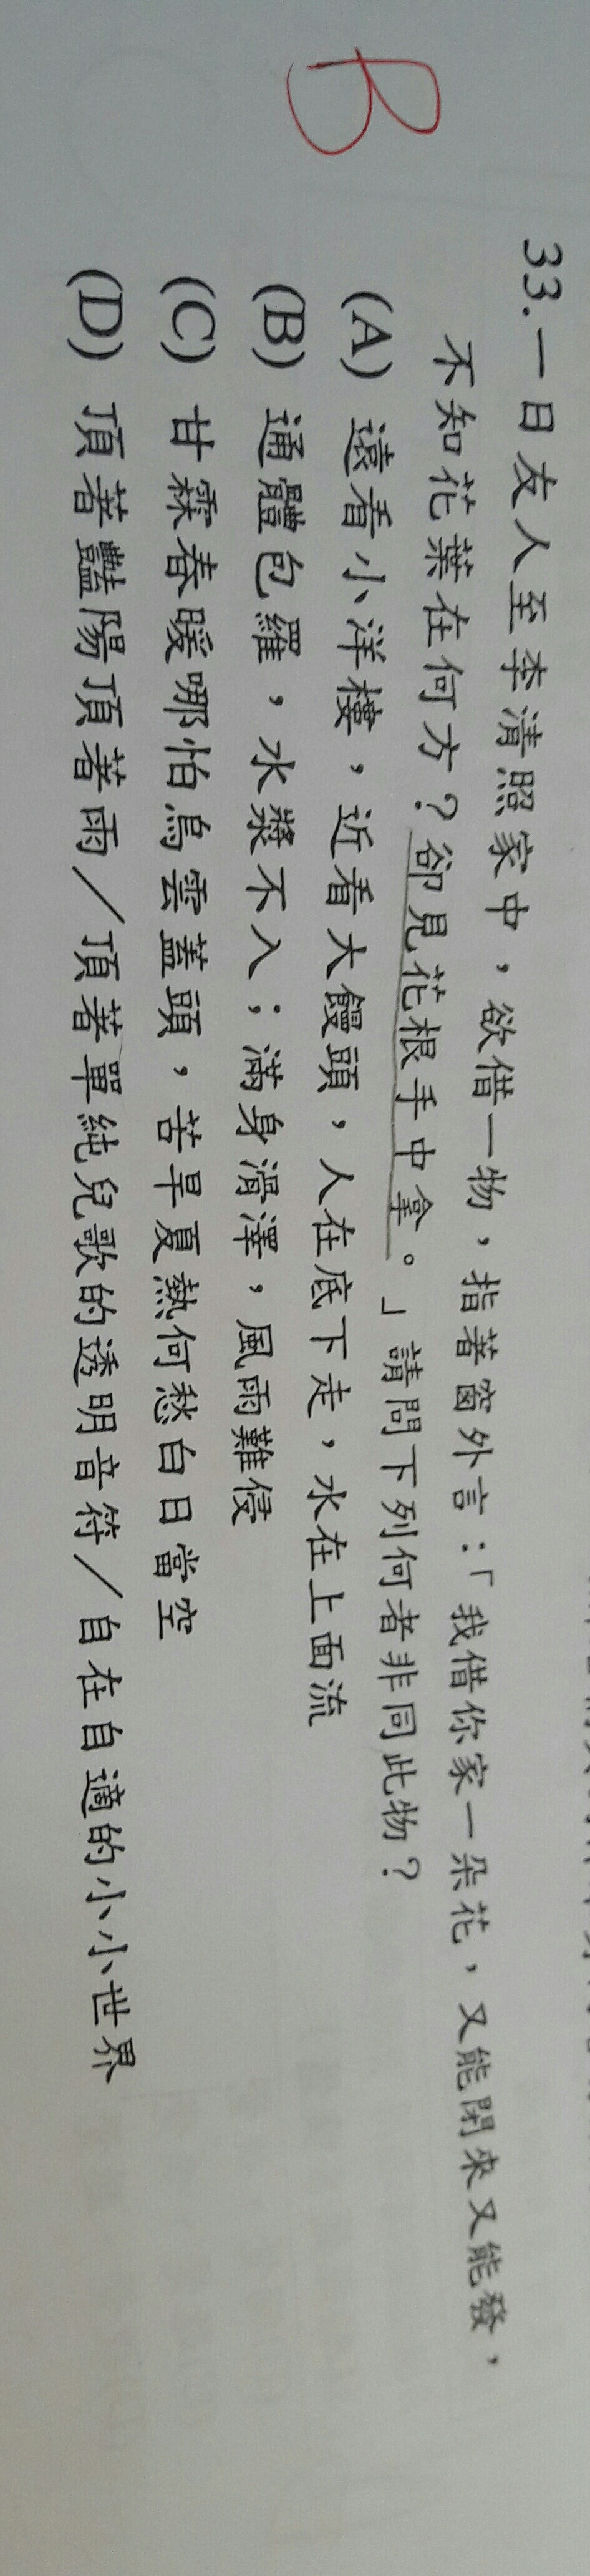 B
33.一日友人至李清照家中，欲借一物，指著窗外言：「我借你家一朵花，又能閉來又能發，
不知花葉在何方？卻見花根手中拿。」請問下列何者非同此物？
(A) 遠看小洋樓，近看大饅頭，人在底下走，水在上面流
(B) 通體包羅，水漿不入；滿身滑澤，風雨難侵
(C) 甘霖春暖哪怕烏雲蓋頭，苦旱夏熱何愁白日當空
(D) 頂著豔陽頂著雨／頂著單純兒歌的透明音符／自在自適的小小世界